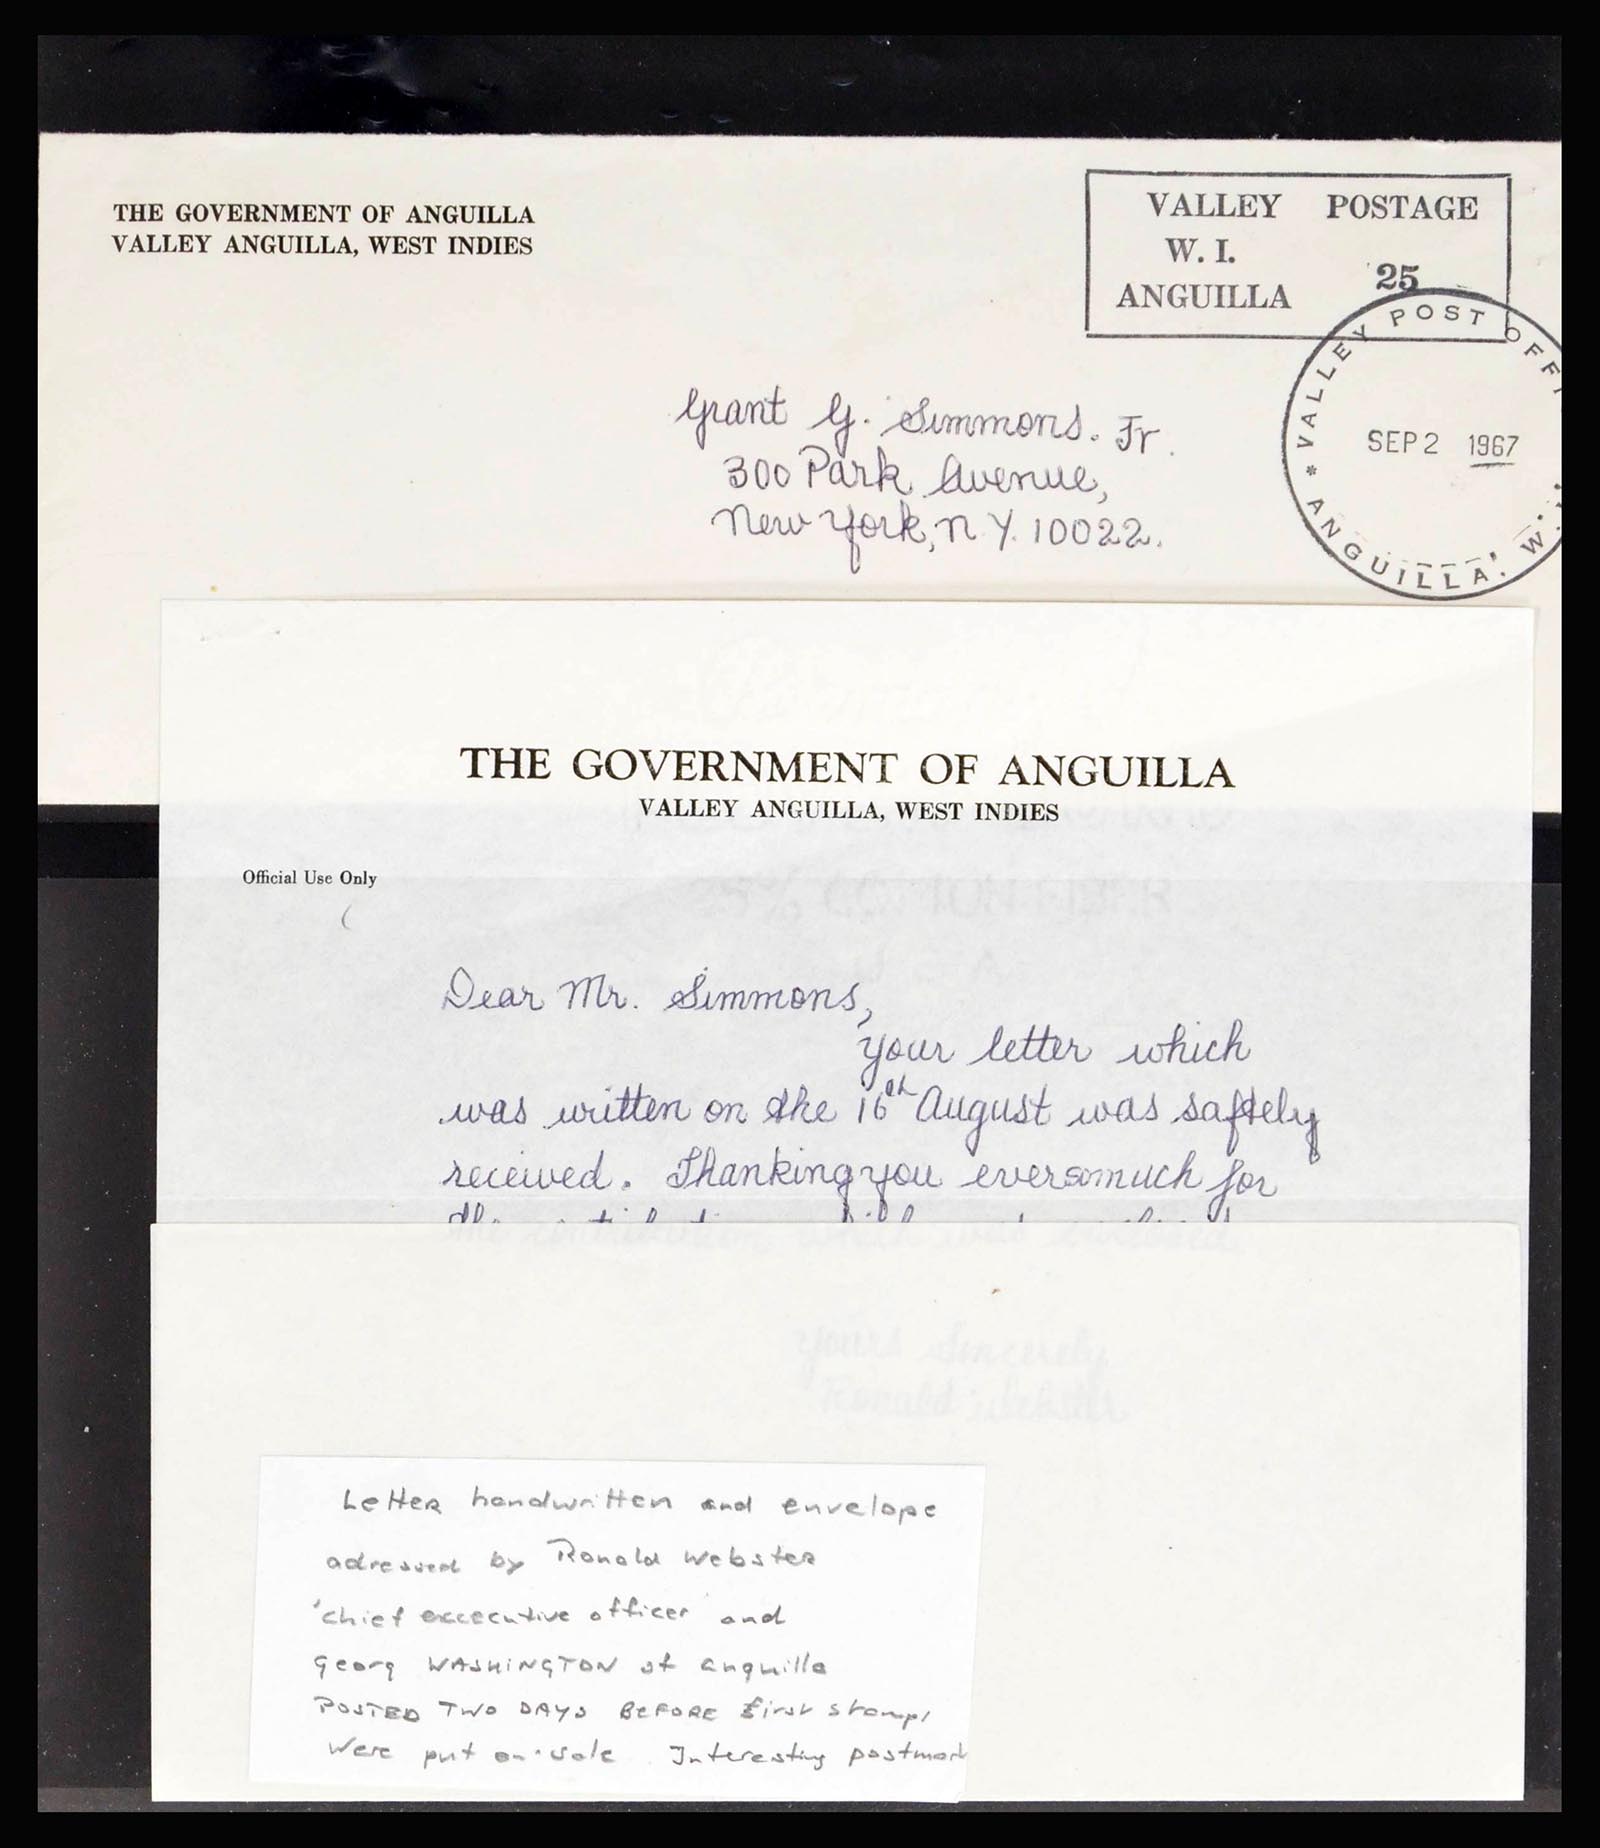 THE GOVERNMENT OF ANGUILLA
VALLEY ANGUILLA, WEST INDIES
VALLEY POSTAGE
W. I.
ANGUILLA 25
* VALLEY POST OFFI
SEP 2 1967
ANGUILLA, W.
Grant G. Simmons. Jr.
300 Park Avenue,
New York, N.Y. 10022.
THE GOVERNMENT OF ANGUILLA
VALLEY ANGUILLA, WEST INDIES
Official Use Only
Dear Mr. Simmons,
Your letter which
was written on the 16th August was saftely
received. Thanking you ever so much for
the contribution which was enclosed
Yours Sincerely
Ronald Webster
Letter handwritten and envelope
adressed by Ronald Webster
'chief excecutive officer' and
Georg WASHINGTON of Anguilla
POSTED TWO DAYS BEFORE first stamps
were put on sale. Interesting postmark